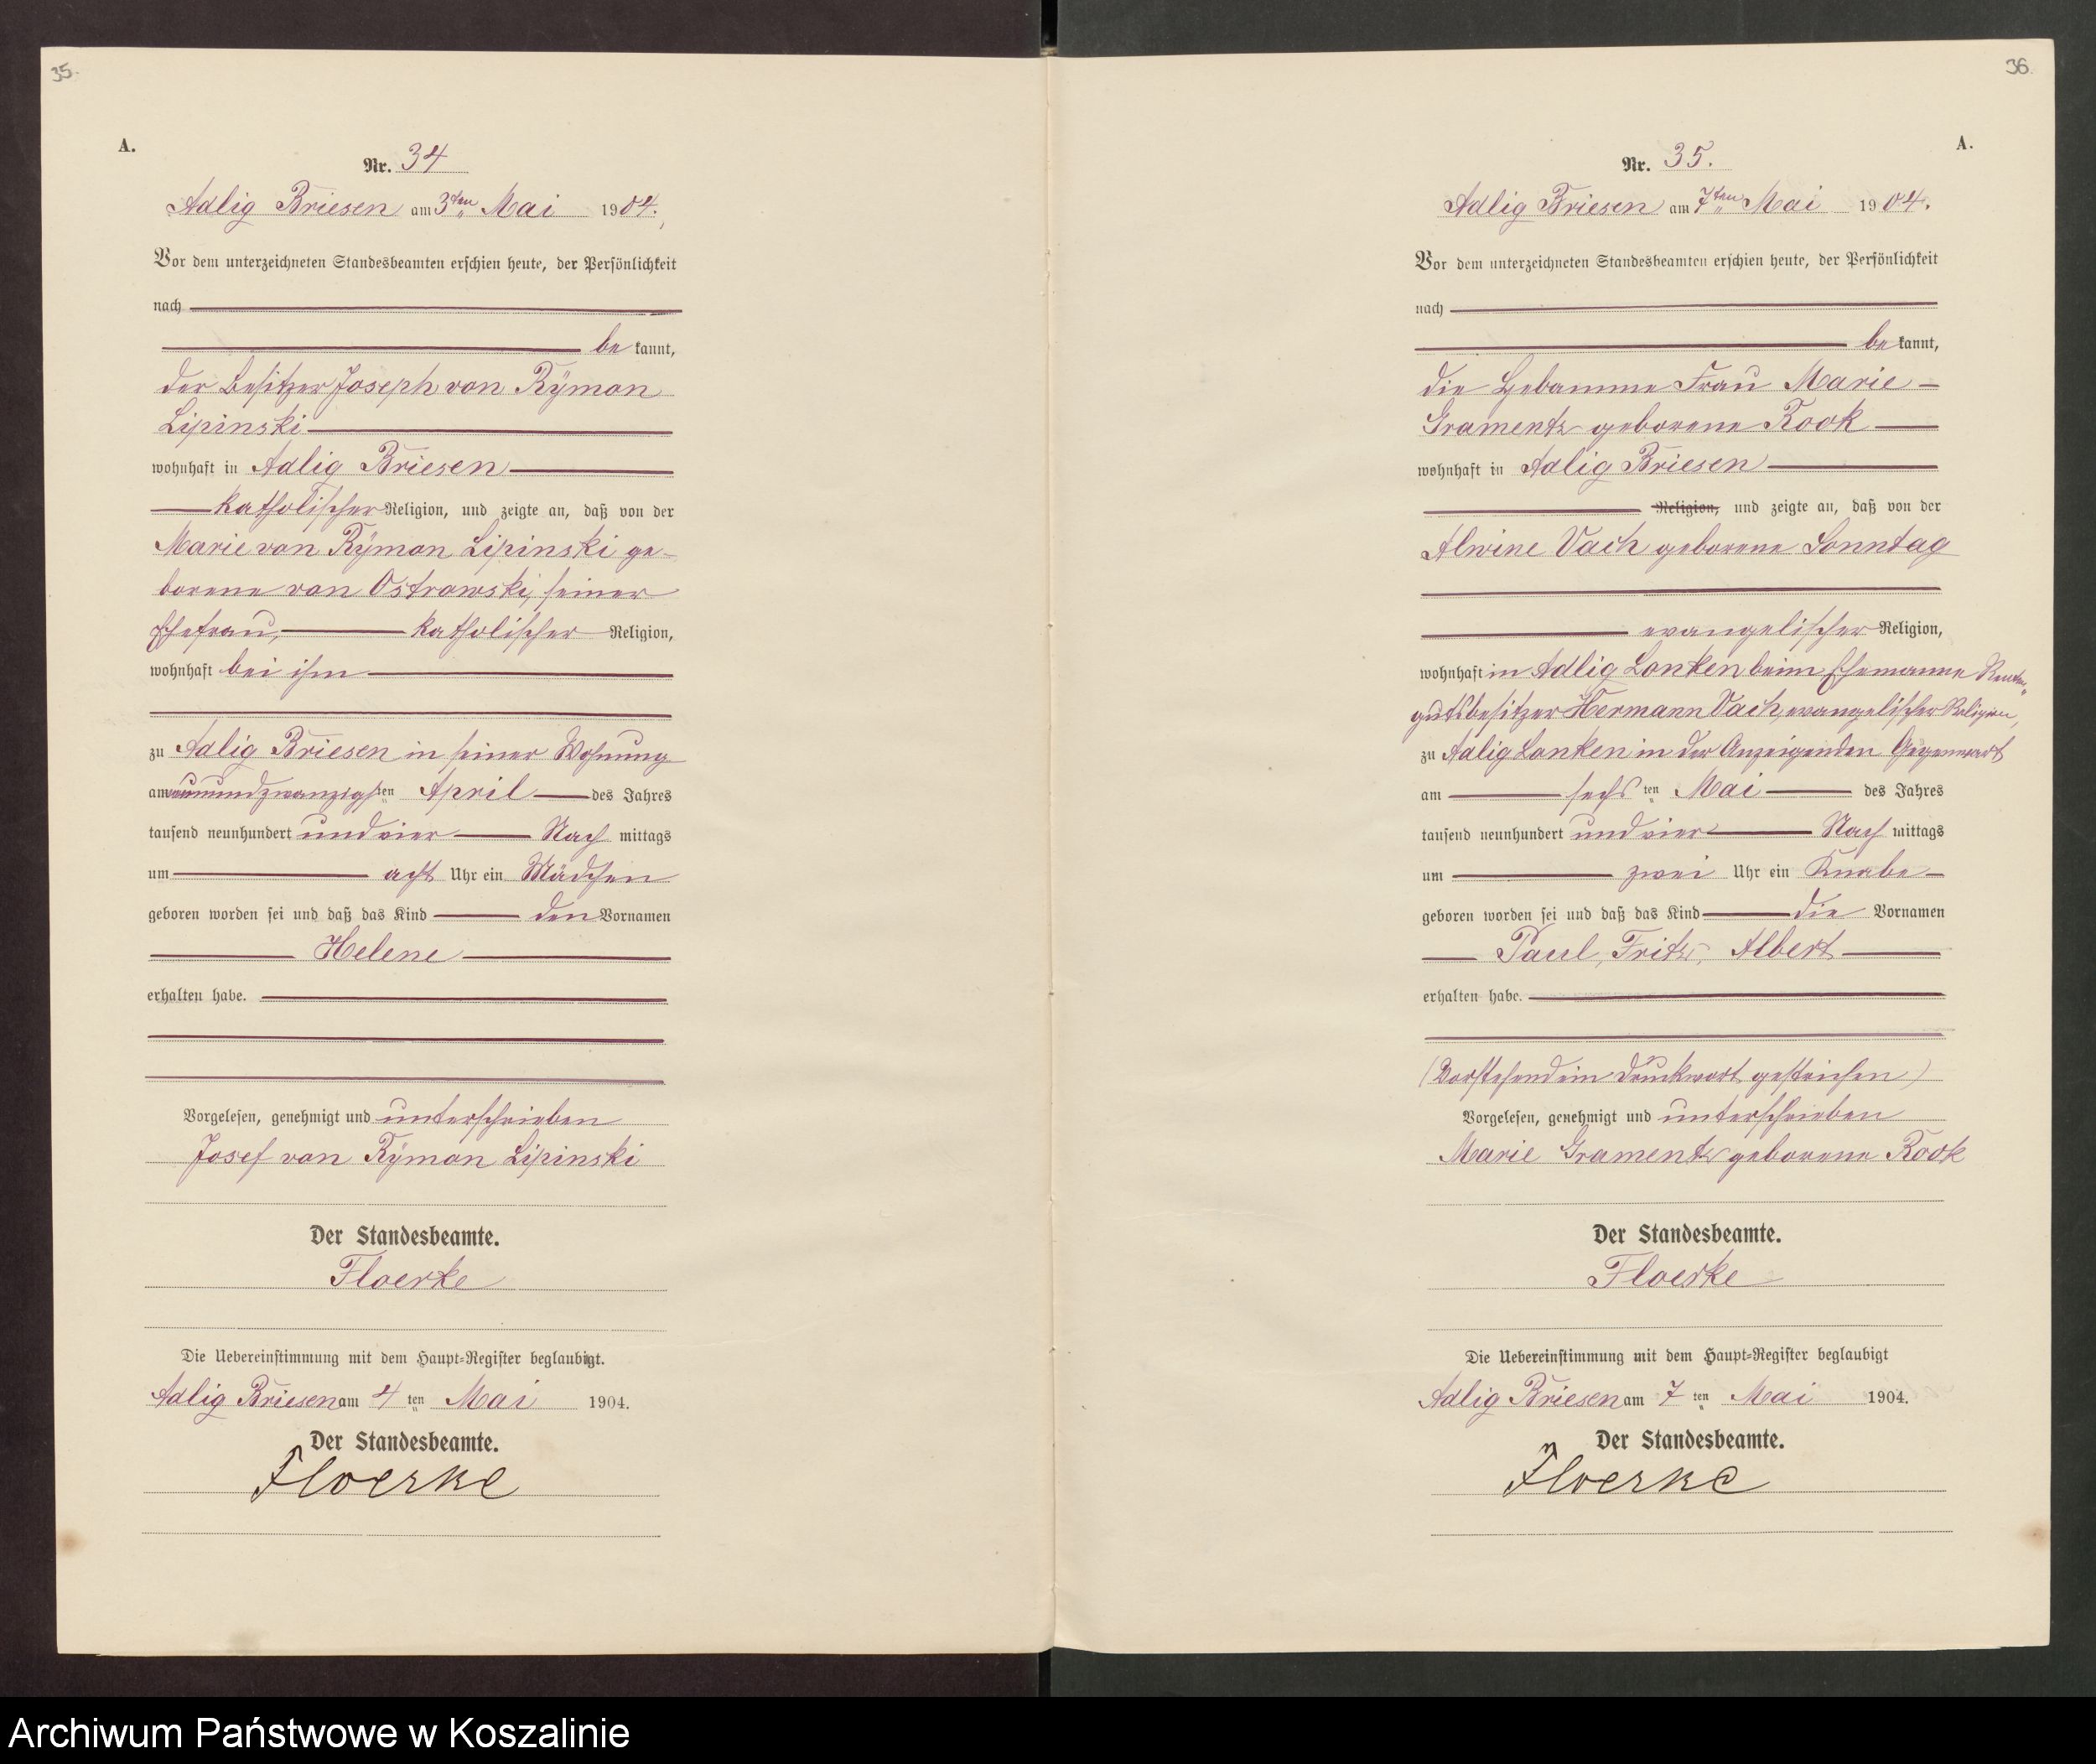 35.
A.
Nr. 34
Adlig Briesen am 3ten Mai 1904.
Vor dem unterzeichneten Standesbeamten erschien heute, der Persönlichkeit
nach
be kannt,
der Besitzer Joseph von Rÿmon
Lipinski
wohnhaft in Adlig Briesen
katholischer Religion, und zeigte an, daß von der
Marie von Rÿmon Lipinski ge-
borene von Ostrowski, seiner
Ehefrau, katholischer Religion,
wohnhaft bei ihm
zu Adlig Briesen in seiner Wohnung
am neunundzwanzigsten April des Jahres
tausend neunhundert und vier Nach mittags
um acht Uhr ein Mädchen
geboren worden sei und daß das Kind den Vornamen
Helene
erhalten habe.
Vorgelesen, genehmigt und unterschrieben
Josef von Rÿmon Lipinski
Der Standesbeamte.
Floerke
Die Uebereinstimmung mit dem Haupt-Register beglaubigt.
Adlig Briesen am 4 ten Mai 1904.
Der Standesbeamte.
Floerke
36.
A.
Nr. 35.
Adlig Briesen am 7ten Mai 1904.
Vor dem unterzeichneten Standesbeamten erschien heute, der Persönlichkeit
nach
be kannt,
die Hebamme Frau Marie
Gramentz geborene Rook
wohnhaft in Adlig Briesen
Religion, und zeigte an, daß von der
Alwine Vach geborene Sonntag
evangelischer Religion,
wohnhaft in Adlig Lonken beim Ehemanne Renten-
gutsbesitzer Hermann Vach, evangelischer Religion,
zu Adlig Lonken in der Anzeigenden Gegenwart
am sechs ten Mai des Jahres
tausend neunhundert und vier Nach mittags
um zwei Uhr ein Knabe
geboren worden sei und daß das Kind die Vornamen
Paul, Fritz, Albert
erhalten habe.
(Vorstehend ein Druckwort gestrichen)
Vorgelesen, genehmigt und unterschrieben
Marie Gramentz geborene Rook
Der Standesbeamte.
Floerke
Die Uebereinstimmung mit dem Haupt-Register beglaubigt
Adlig Briesen am 7 ten Mai 1904.
Der Standesbeamte.
Floerke
Archiwum Państwowe w Koszalinie